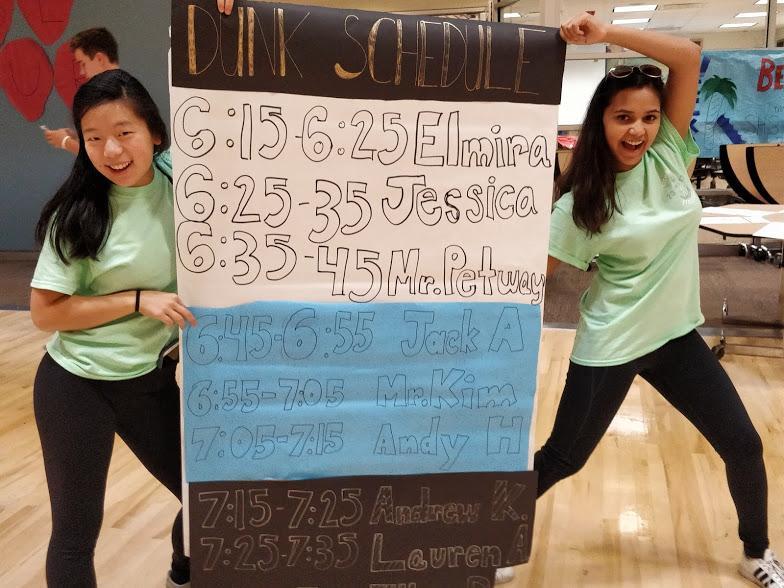 DUNK SCHEDULE
6:15-6:25 Elmira
6:25-35 Jessica
6:35-45 Mr. Petway
6:45-6:55 Jack A
6:55-7:05 Mr. Kim
7:05-7:15 Andy H
7:15-7:25 Andrew K.
7:25-7:35 Lauren A
BE